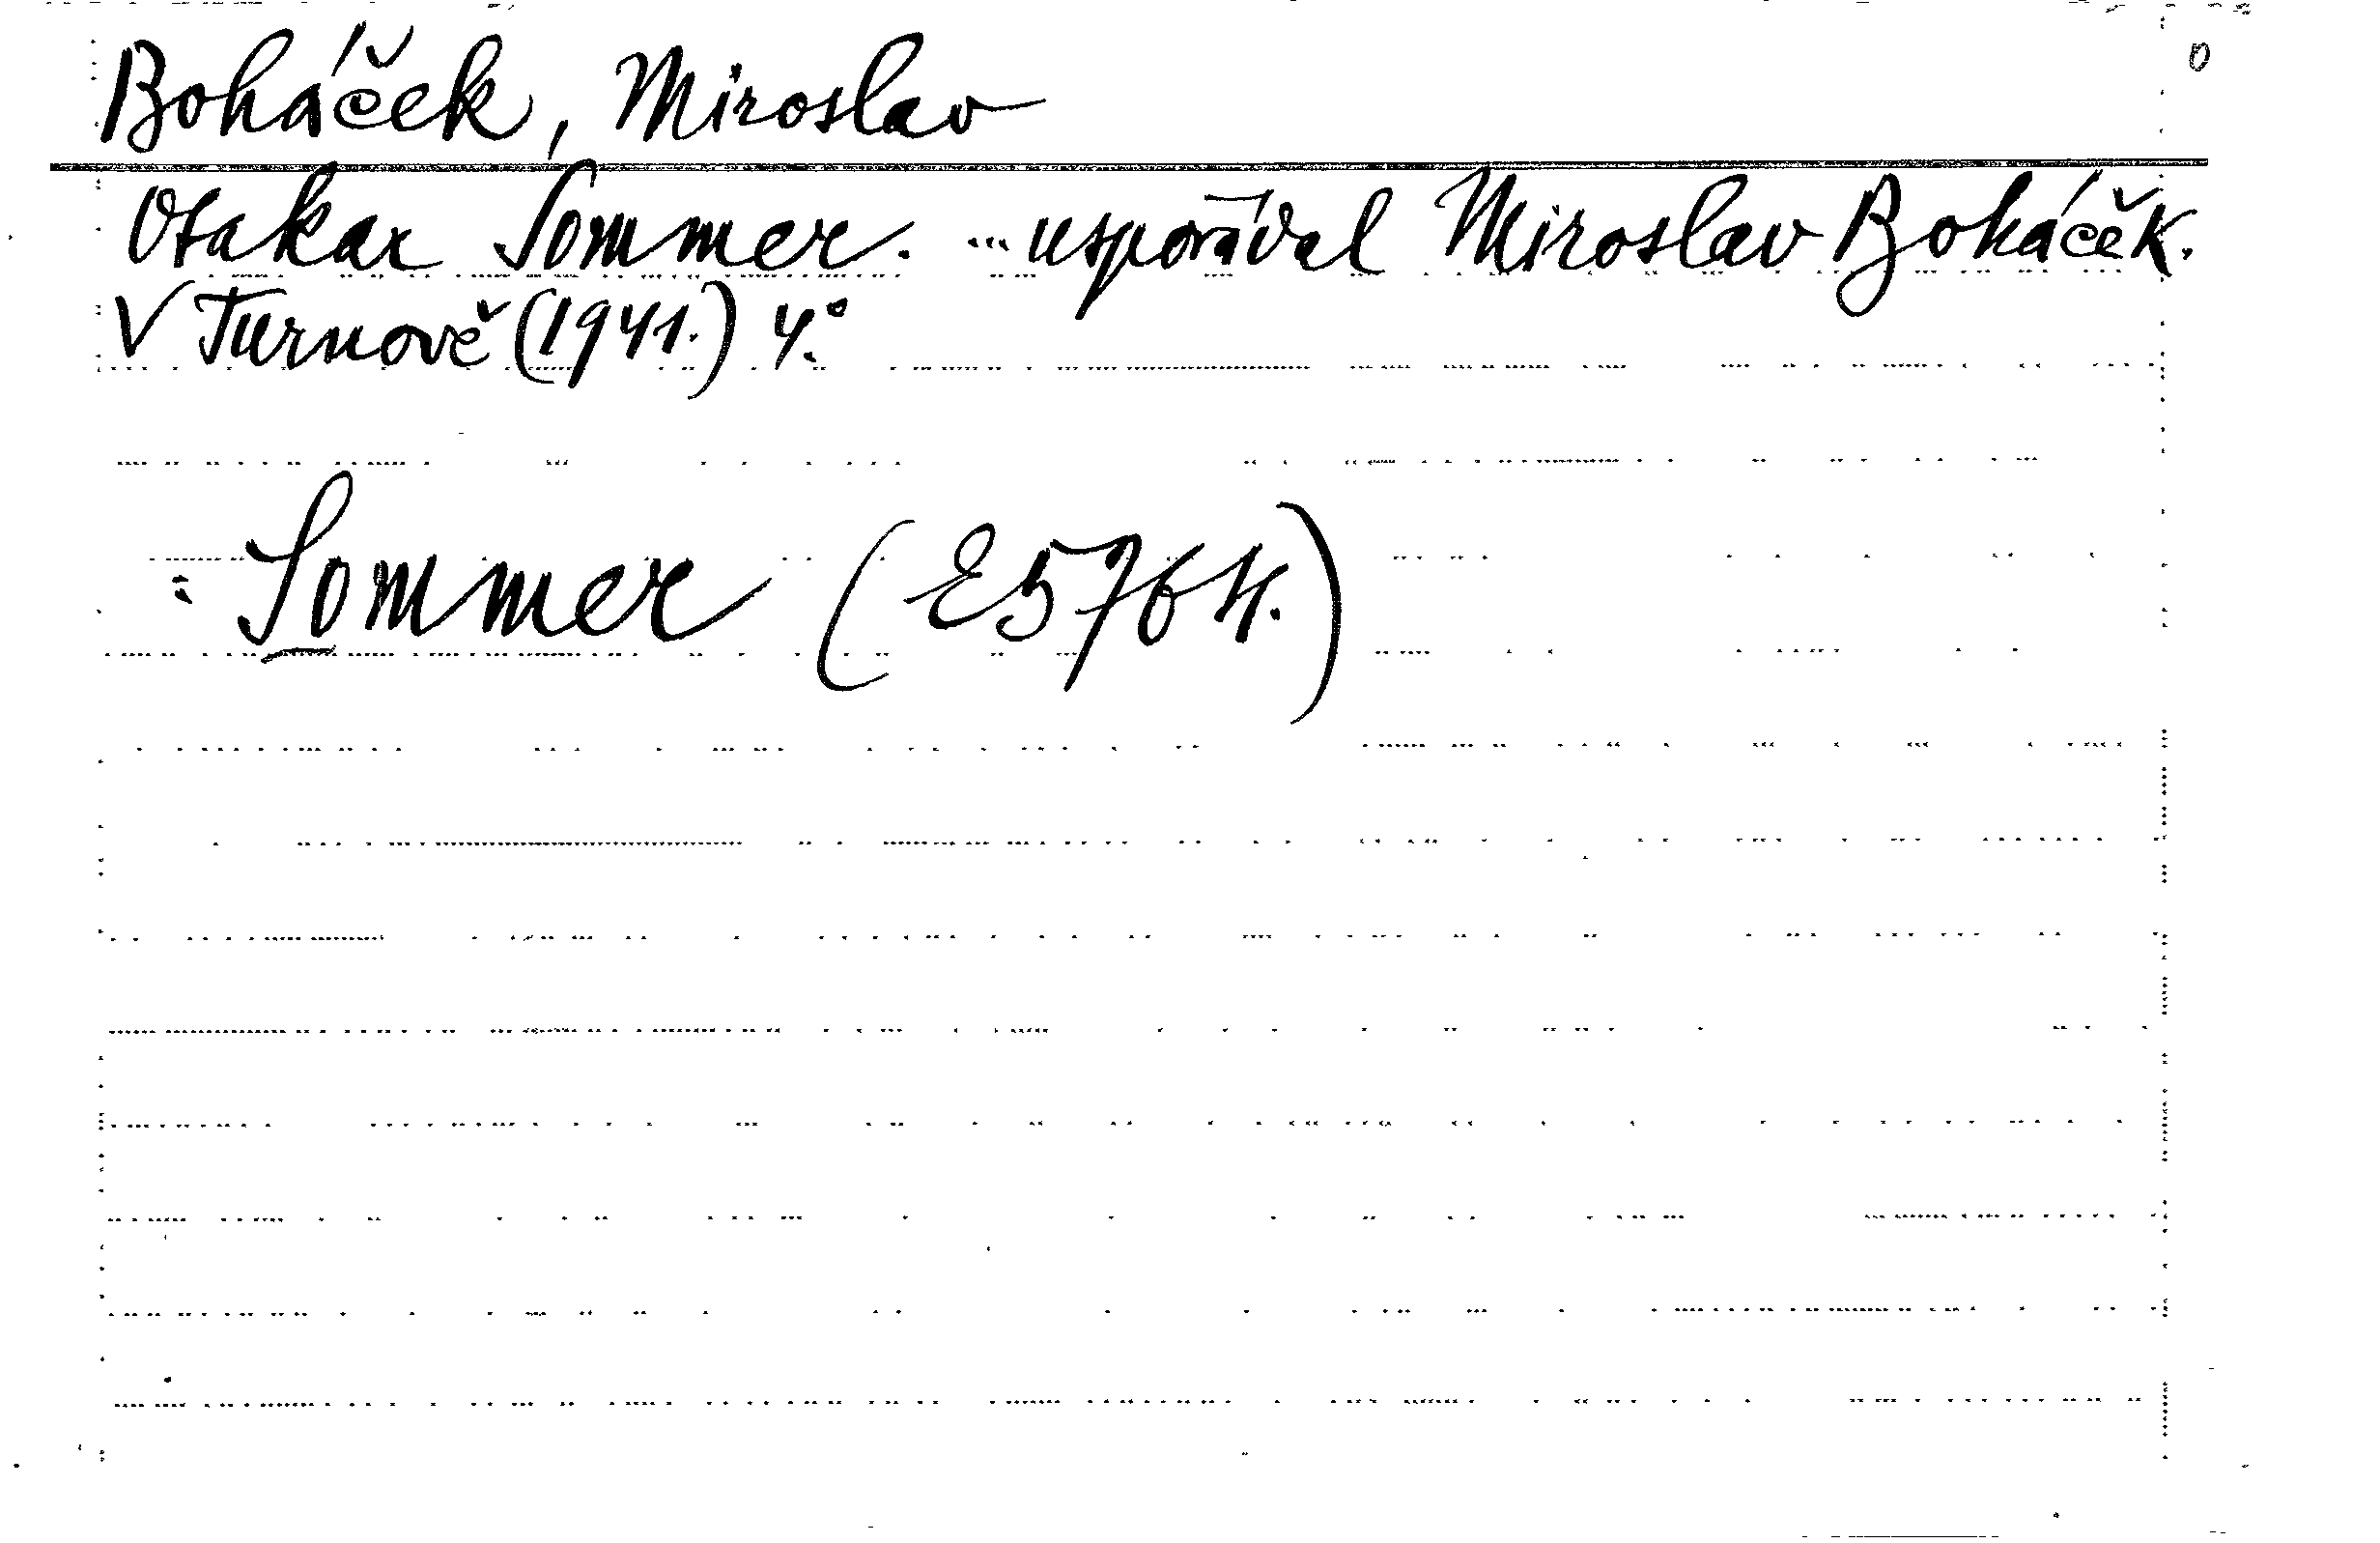 Boháček, Miroslav
Otakar Sommer. ... uspořádal Miroslav Boháček.
V Turnově (1941.) 4.°
: Sommer (E5764.)